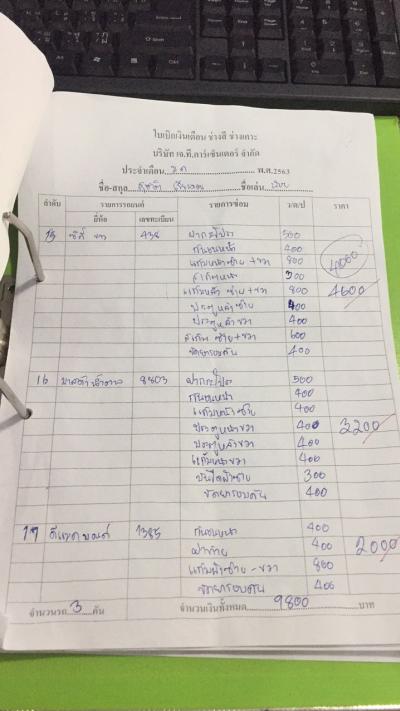 ใบเบิกเงินเดือน ช่างสี ช่างเคาะ
บริษัท เจ.ที.คาร์เซ็นเตอร์ จำกัด
ประจำเดือน ม.ค พ.ศ.2563
ชื่อ-สกุล ชื่อเล่น
ลำดับ รายการรถยนต์ รายการซ่อม ว/ด/ป ราคา
ยี่ห้อ เลขทะเบียน
15 ขาว 438 ฝากระโปรง 500
กันชนหน้า 400
แก้มหน้าซ้าย+ขวา 800 4000
300
แก้มหลังซ้าย+ขวา 800 4600
ประตูหลังซ้าย 400
ประตูหลังขวา 400
ซ้าย+ขวา 600
ขัดยารอบคัน 400
16 มาสด้า น้ำตาล 8803 ฝากระโปรง 500
กันชนหน้า 400
แก้มหน้าซ้าย 400
ประตูหน้าขวา 400 3200
ประตูหลังขวา 400
แก้มหลังขวา 400
บันไดฝั่งซ้าย 300
ขัดยารอบคัน 400
17 ดีแมค บรอนด์ 1385 กันชนหน้า 400
ฝาท้าย 400 2000
แก้มฝั่งซ้าย-ขวา 800
ขัดยารอบคัน 400
จำนวนรถ 3 คัน จำนวนเงินทั้งหมด 9800 บาท